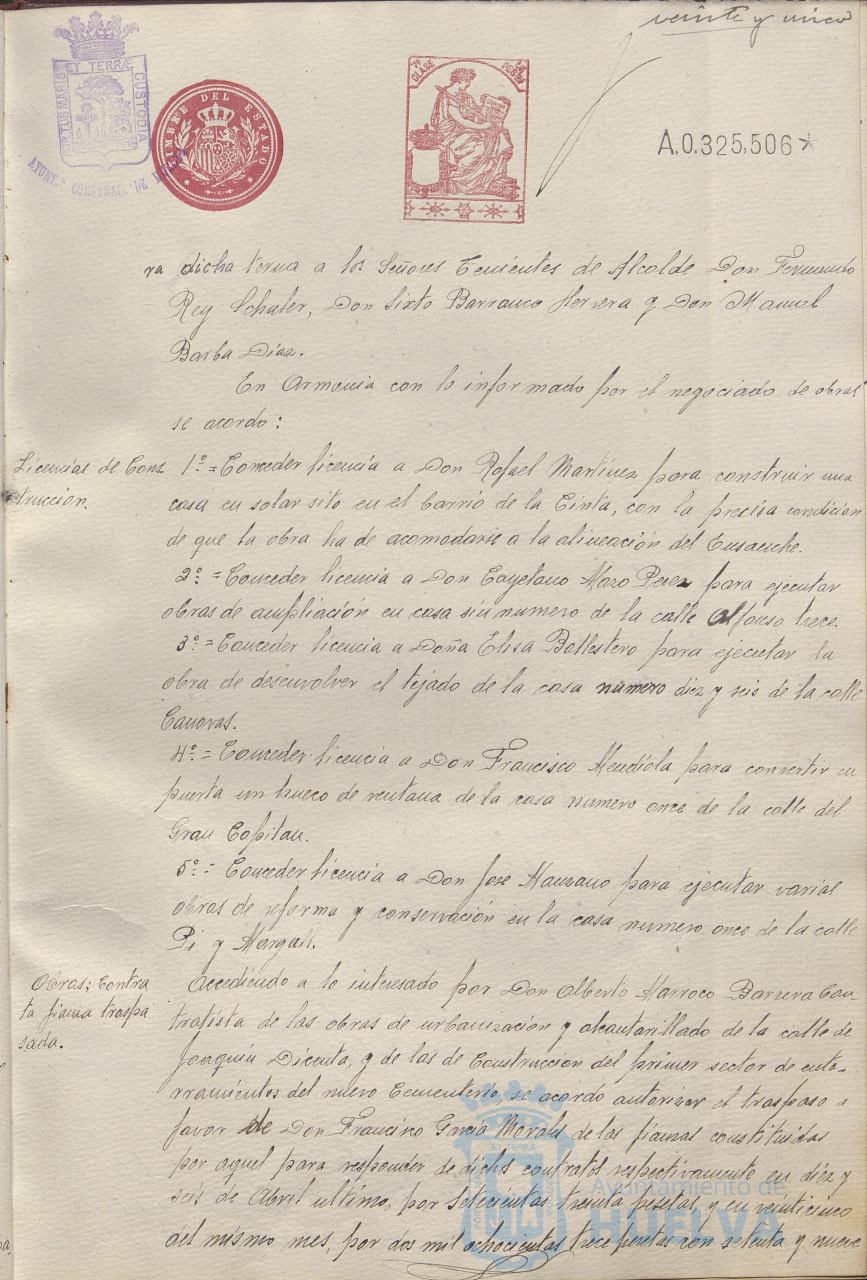 veinte y unico
PORTUS MARIS ET TERRÆ CUSTODIA
AYUNT.º CONSTNAL. DE HUELVA
TIMBRE DEL ESTADO
7ª CLASE PESETA
A.0.325,506
ra dicha terna a los Señores Tenientes de Alcalde Don Fernando
Rey Schuler, Don Sixto Barranco Herrera y Don Manuel
Barba Diaz.
En Armonia con lo informado por el negociado de obras
se acordo:
Licencias de Cons
trucción.
1º = Conceder licencia a Don Rafael Martinez para construir una
casa en solar sito en el barrio de la Cinta, con la precisa condicion
de que la obra ha de acomodarse a la alineación del Ensanche.
2º = Conceder licencia a Don Cayetano Mazo Perez para ejecutar
obras de ampliación en casa sin numero de la calle Alfonso trece.
3º = Conceder licencia a Doña Elisa Ballestero para ejecutar la
obra de desenvolver el tejado de la casa numero diez y seis de la calle
Canovas.
4º = Conceder licencia a Don Francisco Mendiola para convertir en
puerta un hueco de ventana de la casa numero once de la calle del
Gran Capitan.
5º = Conceder licencia a Don Jose Manzano para ejecutar varias
obras de reforma y conservación en la casa numero once de la calle
Pi y Margall.
Obras; Contra
ta fianza traspa
sada.
Accediendo a lo interesado por Don Alberto Marroco Barrera Con
tratista de las obras de urbanización y alcantarillado de la calle de
Joaquin Dicenta, y de las de Construccion del primer sector de ente-
rramientos del nuevo Cementerio, se acordo autorizar el traspaso a
favor de Don Francisco Garcia Morales de las fianzas constituidas
por aquel para responder de dichos contratos respectivamente en diez y
seis de Abril ultimo, por setecientas treinta pesetas, y en veinticinco
del mismo mes, por dos mil ochocientas trece pesetas con setenta y nueve
Ayuntamiento de
HUELVA